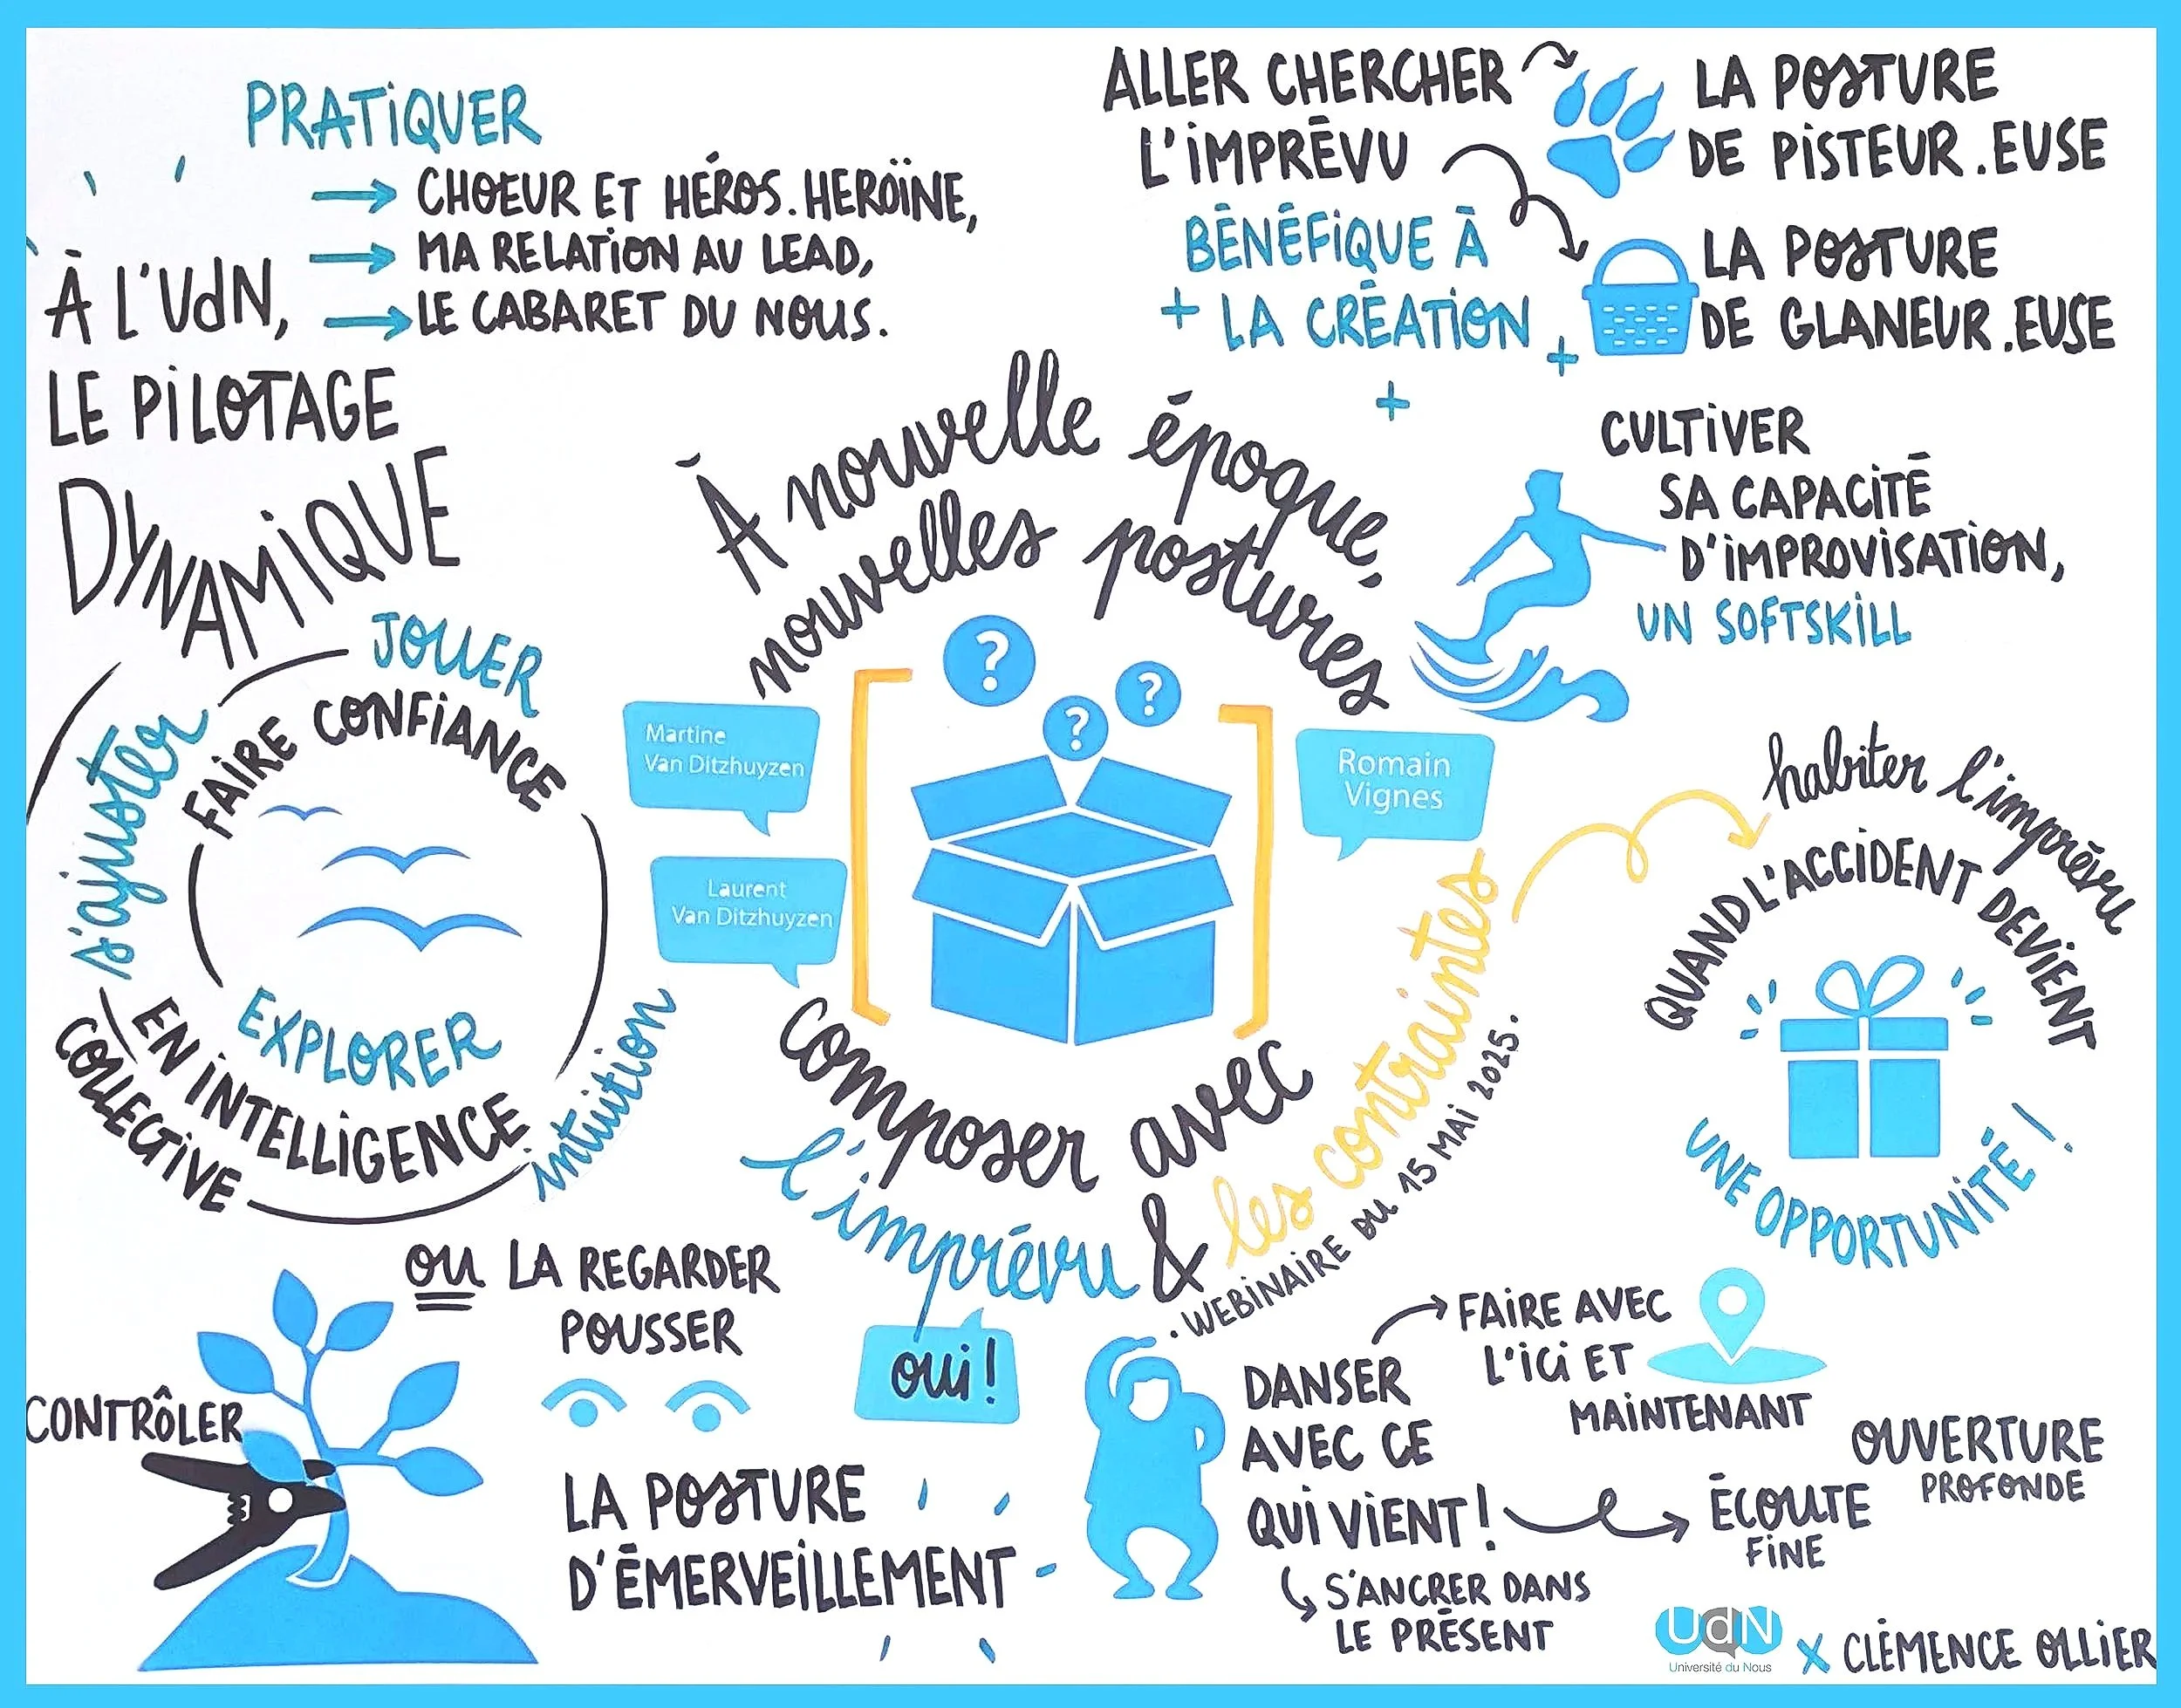 PRATIQUER
→ CHOEUR ET HÉROS.HEROÏNE,
→ MA RELATION AU LEAD,
→ LE CABARET DU NOUS.
À L'UdN,
LE PILOTAGE
DYNAMIQUE
ALLER CHERCHER
L'IMPRÉVU
BÉNÉFIQUE À
+ LA CRÉATION +
+
LA POSTURE
DE PISTEUR.EUSE
LA POSTURE
DE GLANEUR.EUSE
CULTIVER
SA CAPACITÉ
D'IMPROVISATION,
UN SOFTSKILL
À nouvelle époque,
nouvelles postures
? ? ?
Martine
Van Ditzhuyzen
Laurent
Van Ditzhuyzen
Romain
Vignes
composer avec
l'imprévu & les contraintes
. WEBINAIRE DU 15 MAI 2025.
JOUER
s'ajuster
FAIRE CONFIANCE
EXPLORER
EN INTELLIGENCE
COLLECTIVE
intuition
habiter l'imprévu
QUAND L'ACCIDENT DEVIENT
UNE OPPORTUNITÉ !
CONTRÔLER
OU LA REGARDER
POUSSER
LA POSTURE
D'ÉMERVEILLEMENT
oui !
DANSER
AVEC CE
QUI VIENT !
FAIRE AVEC
L'ICI ET
MAINTENANT
OUVERTURE
PROFONDE
ÉCOUTE
FINE
S'ANCRER DANS
LE PRÉSENT
UdN
Université du Nous
X CLÉMENCE OLLIER